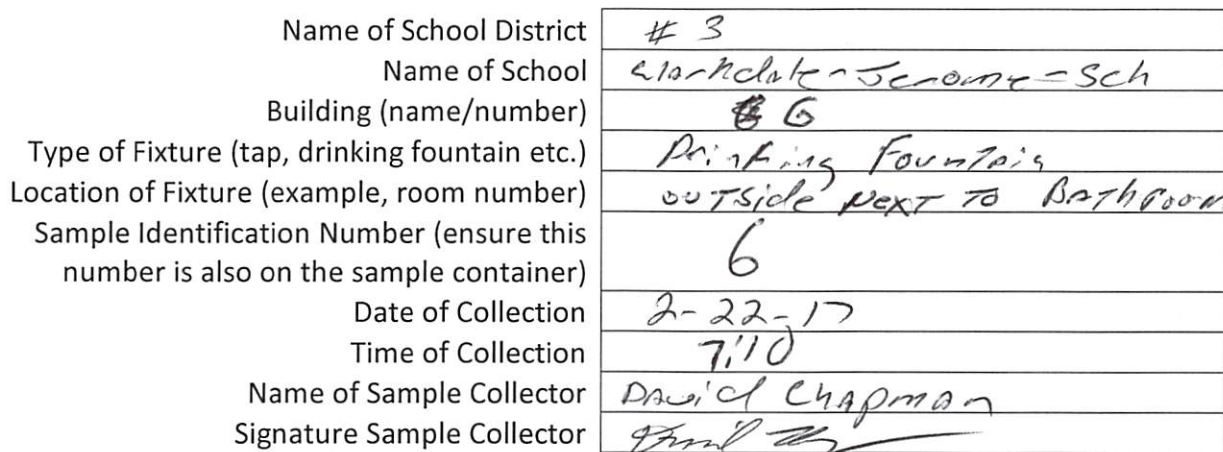 Name of School District # 3
Name of School Clarkdale-Jerome-Sch
Building (name/number) 6
Type of Fixture (tap, drinking fountain etc.) Drinking Fountain
Location of Fixture (example, room number) OUTSide NexT To BAThRoom
Sample Identification Number (ensure this
number is also on the sample container) 6
Date of Collection 2-22-17
Time of Collection 7:10
Name of Sample Collector DAvid ChApmAn
Signature Sample Collector